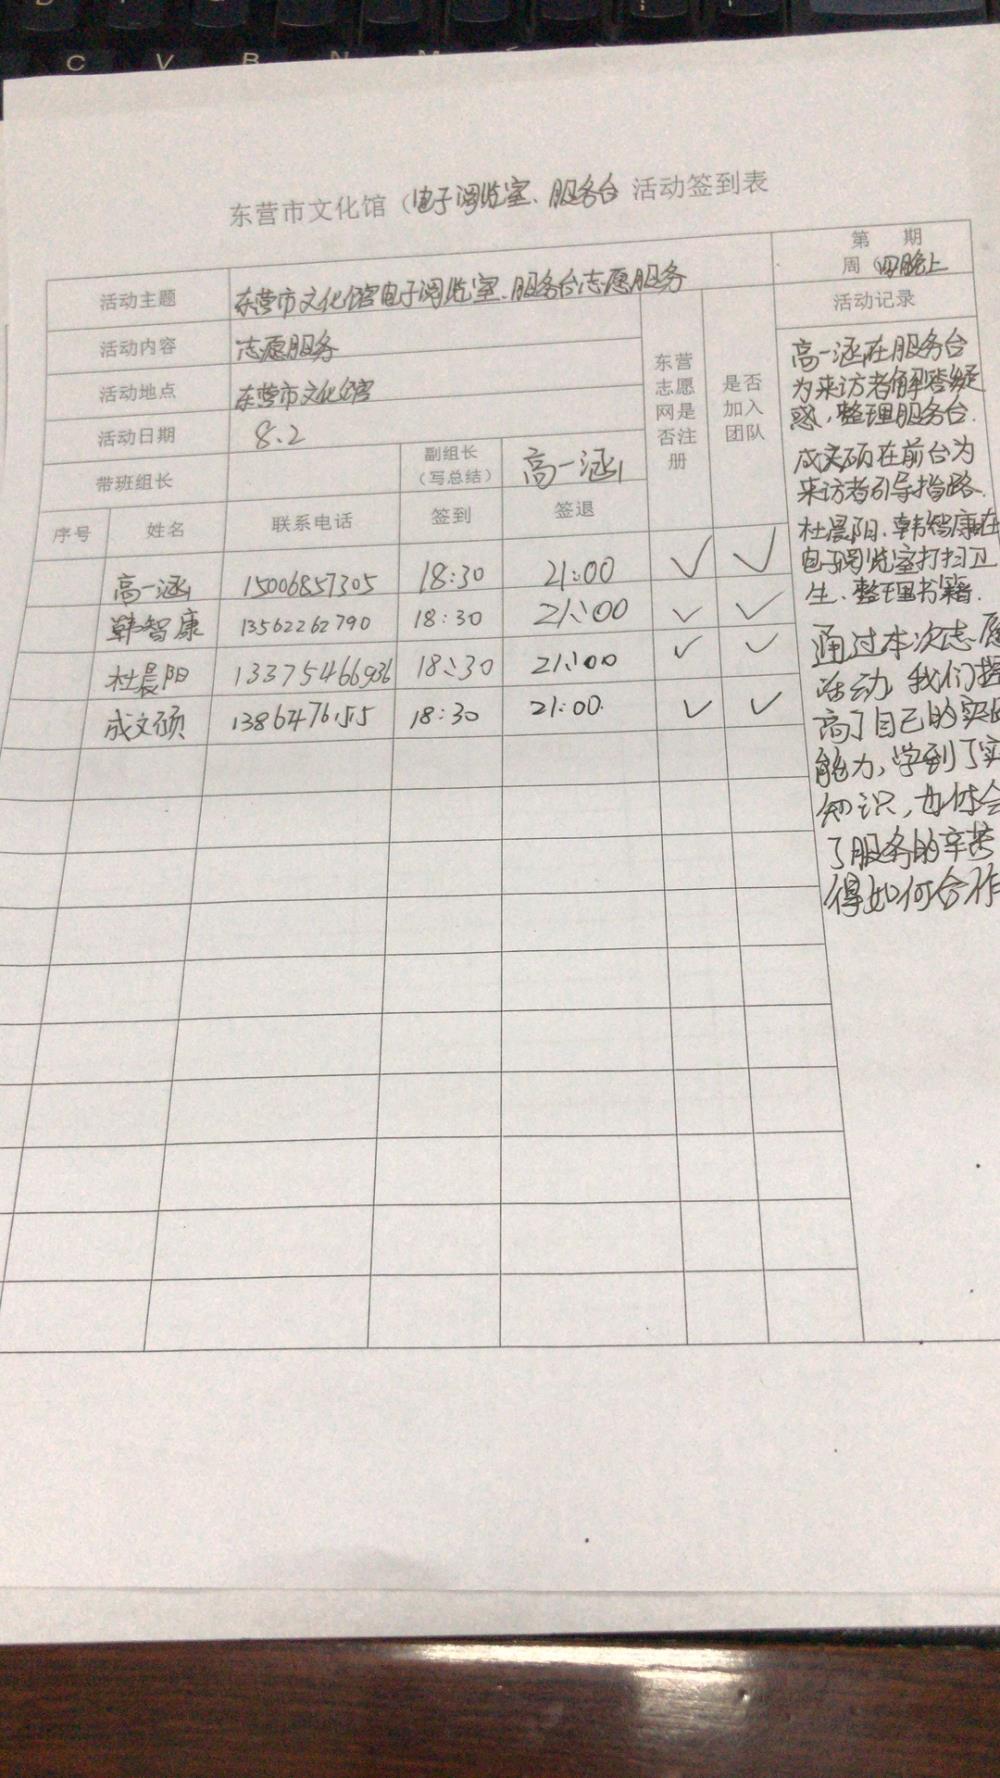 C V B N M
东营市文化馆（电子阅览室、服务台 活动签到表
第 期
周（四晚上
活动主题 东营市文化馆电子阅览室、服务台志愿服务
活动内容 志愿服务
活动地点 东营市文化馆
活动日期 8.2
带班组长 副组长（写总结） 高一涵
东营志愿网是否注册
是否加入团队
活动记录
序号 姓名 联系电话 签到 签退
高一涵 15006857305 18:30 21:00 ✓ ✓
韩智康 13562262790 18:30 21:00 ✓ ✓
杜晨阳 13375466936 18:30 21:00 ✓ ✓
成文硕 18:30 21:00 ✓ ✓
高一涵在服务台
为来访者解答疑
惑，整理服务台.
成文硕在前台为
来访者引导指路.
杜晨阳、韩智康在
电子阅览室打扫卫
生、整理书籍.
通过本次志愿
活动，我们提
高了自己的实
能力，学到了实
知识，也体会
了服务的辛苦
得如何合作